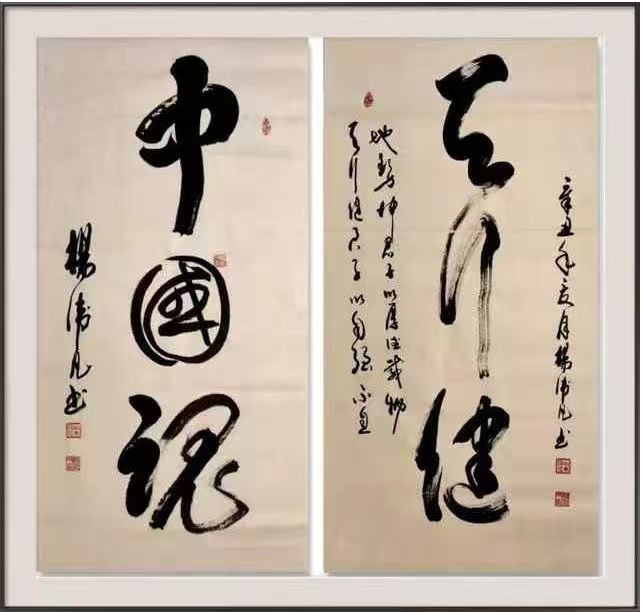 天行健
天行健君子以自强不息
地勢坤君子以厚德載物
辛丑年月楊凡书
中國魂
楊凡书